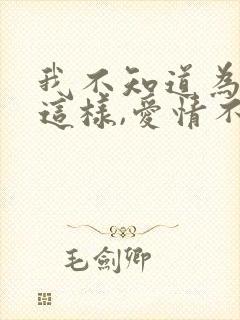 我不知道為
這樣,愛情不
毛劍卿